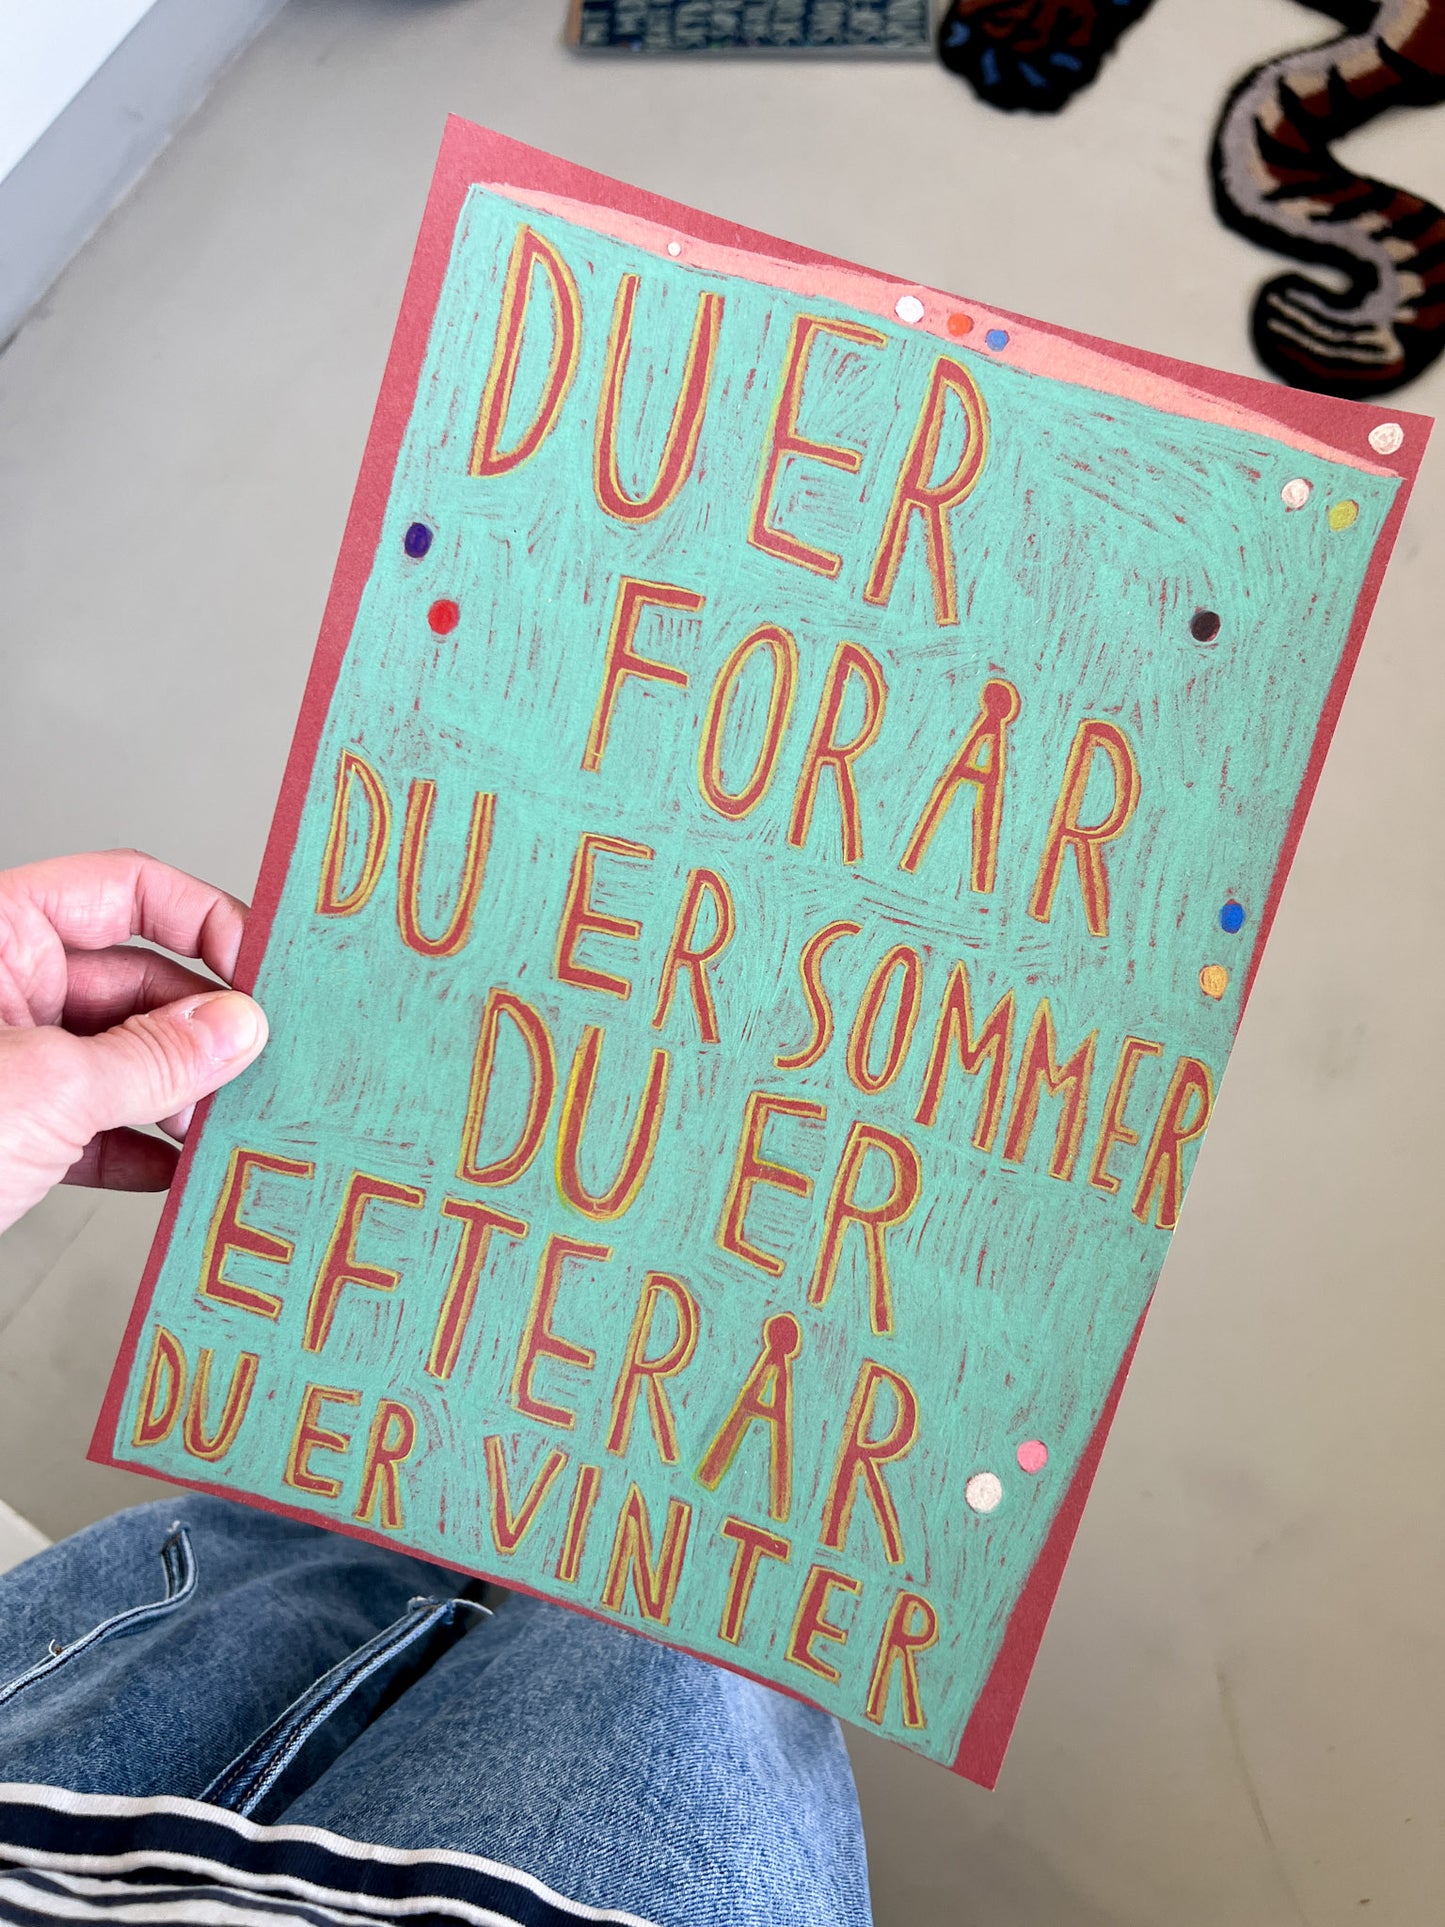 DU ER
FORÅR
DU ER SOMMER
DU ER
EFTERÅR
DU ER VINTER